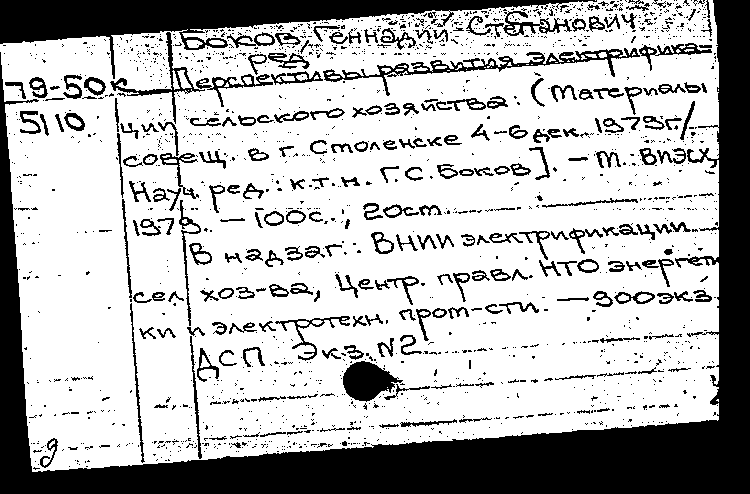 Боков, Геннадий Степанович
ред.
79-50к Перспективы развития электрифика-
5110 ции сельского хозяйства: (Материалы
совещ. в г. Смоленске 4-6 дек. 1979г/.
Науч. ред.: к.т.н. Г.С. Боков]. — М.: ВИЭСХ,
1979. — 100с.; 20см.
В надзаг.: ВНИИ электрификации
сел. хоз-ва, Центр. правл. НТО энергети
ки и электротехн. пром-сти. — 900экз.
ДСП Экз. N2
д